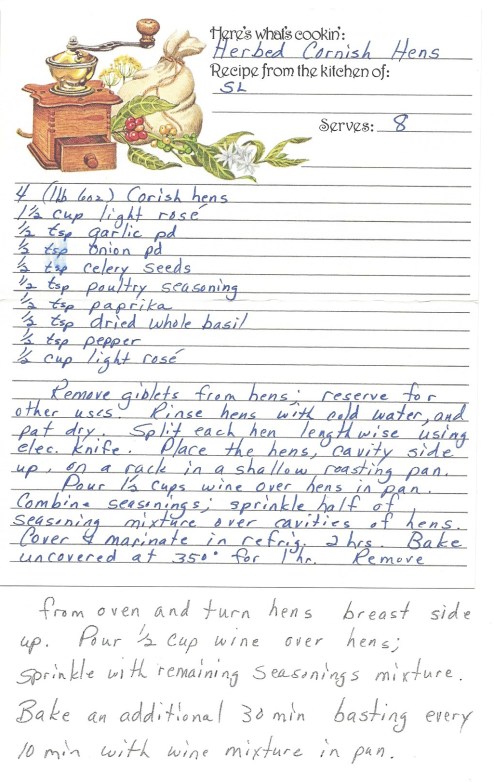 Here's what's cookin':
Herbed Cornish Hens
Recipe from the kitchen of:
SL
Serves: 8
4 (1lb 6oz) Corish hens
1 1/2 cup light rosé
1/2 tsp garlic pd
1/2 tsp onion pd
1/2 tsp celery seeds
1/2 tsp poultry seasoning
1/2 tsp paprika
1/2 tsp dried whole basil
1/2 tsp pepper
1/2 cup light rosé
Remove giblets from hens; reserve for
other uses. Rinse hens with cold water, and
pat dry. Split each hen lengthwise using
elec. knife. Place the hens, cavity side
up, on a rack in a shallow roasting pan.
Pour 1 1/2 cups wine over hens in pan.
Combine seasonings; sprinkle half of
seasoning mixture over cavities of hens.
Cover & marinate in refrig. 2 hrs. Bake
uncovered at 350° for 1 hr. Remove
from oven and turn hens breast side
up. Pour 1/2 cup wine over hens;
sprinkle with remaining seasonings mixture.
Bake an additional 30 min basting every
10 min with wine mixture in pan.